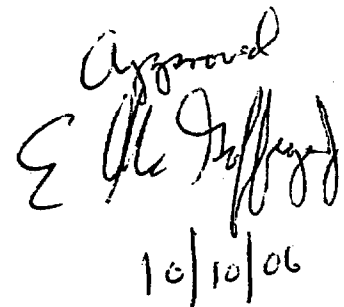 Approved
E
10/10/06